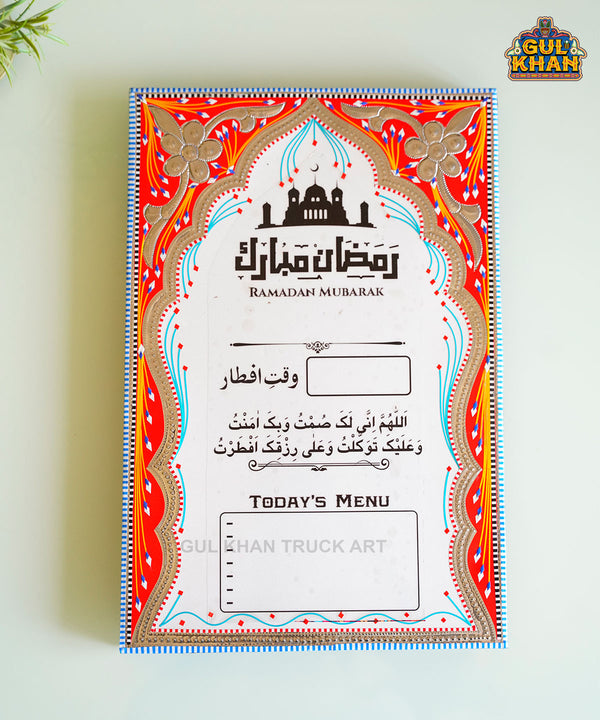 GUL
KHAN
رَمَضَان مُبَارَك
RAMADAN MUBARAK
وقتِ افطار
اَللّٰهُمَّ اِنَّی لَکَ صُمْتُ وَبِکَ اٰمَنْتُ
وَعَلَیْکَ تَوَکَّلْتُ وَعَلٰی رِزْقِکَ اَفْطَرْتُ
TODAY'S MENU
GUL KHAN TRUCK ART